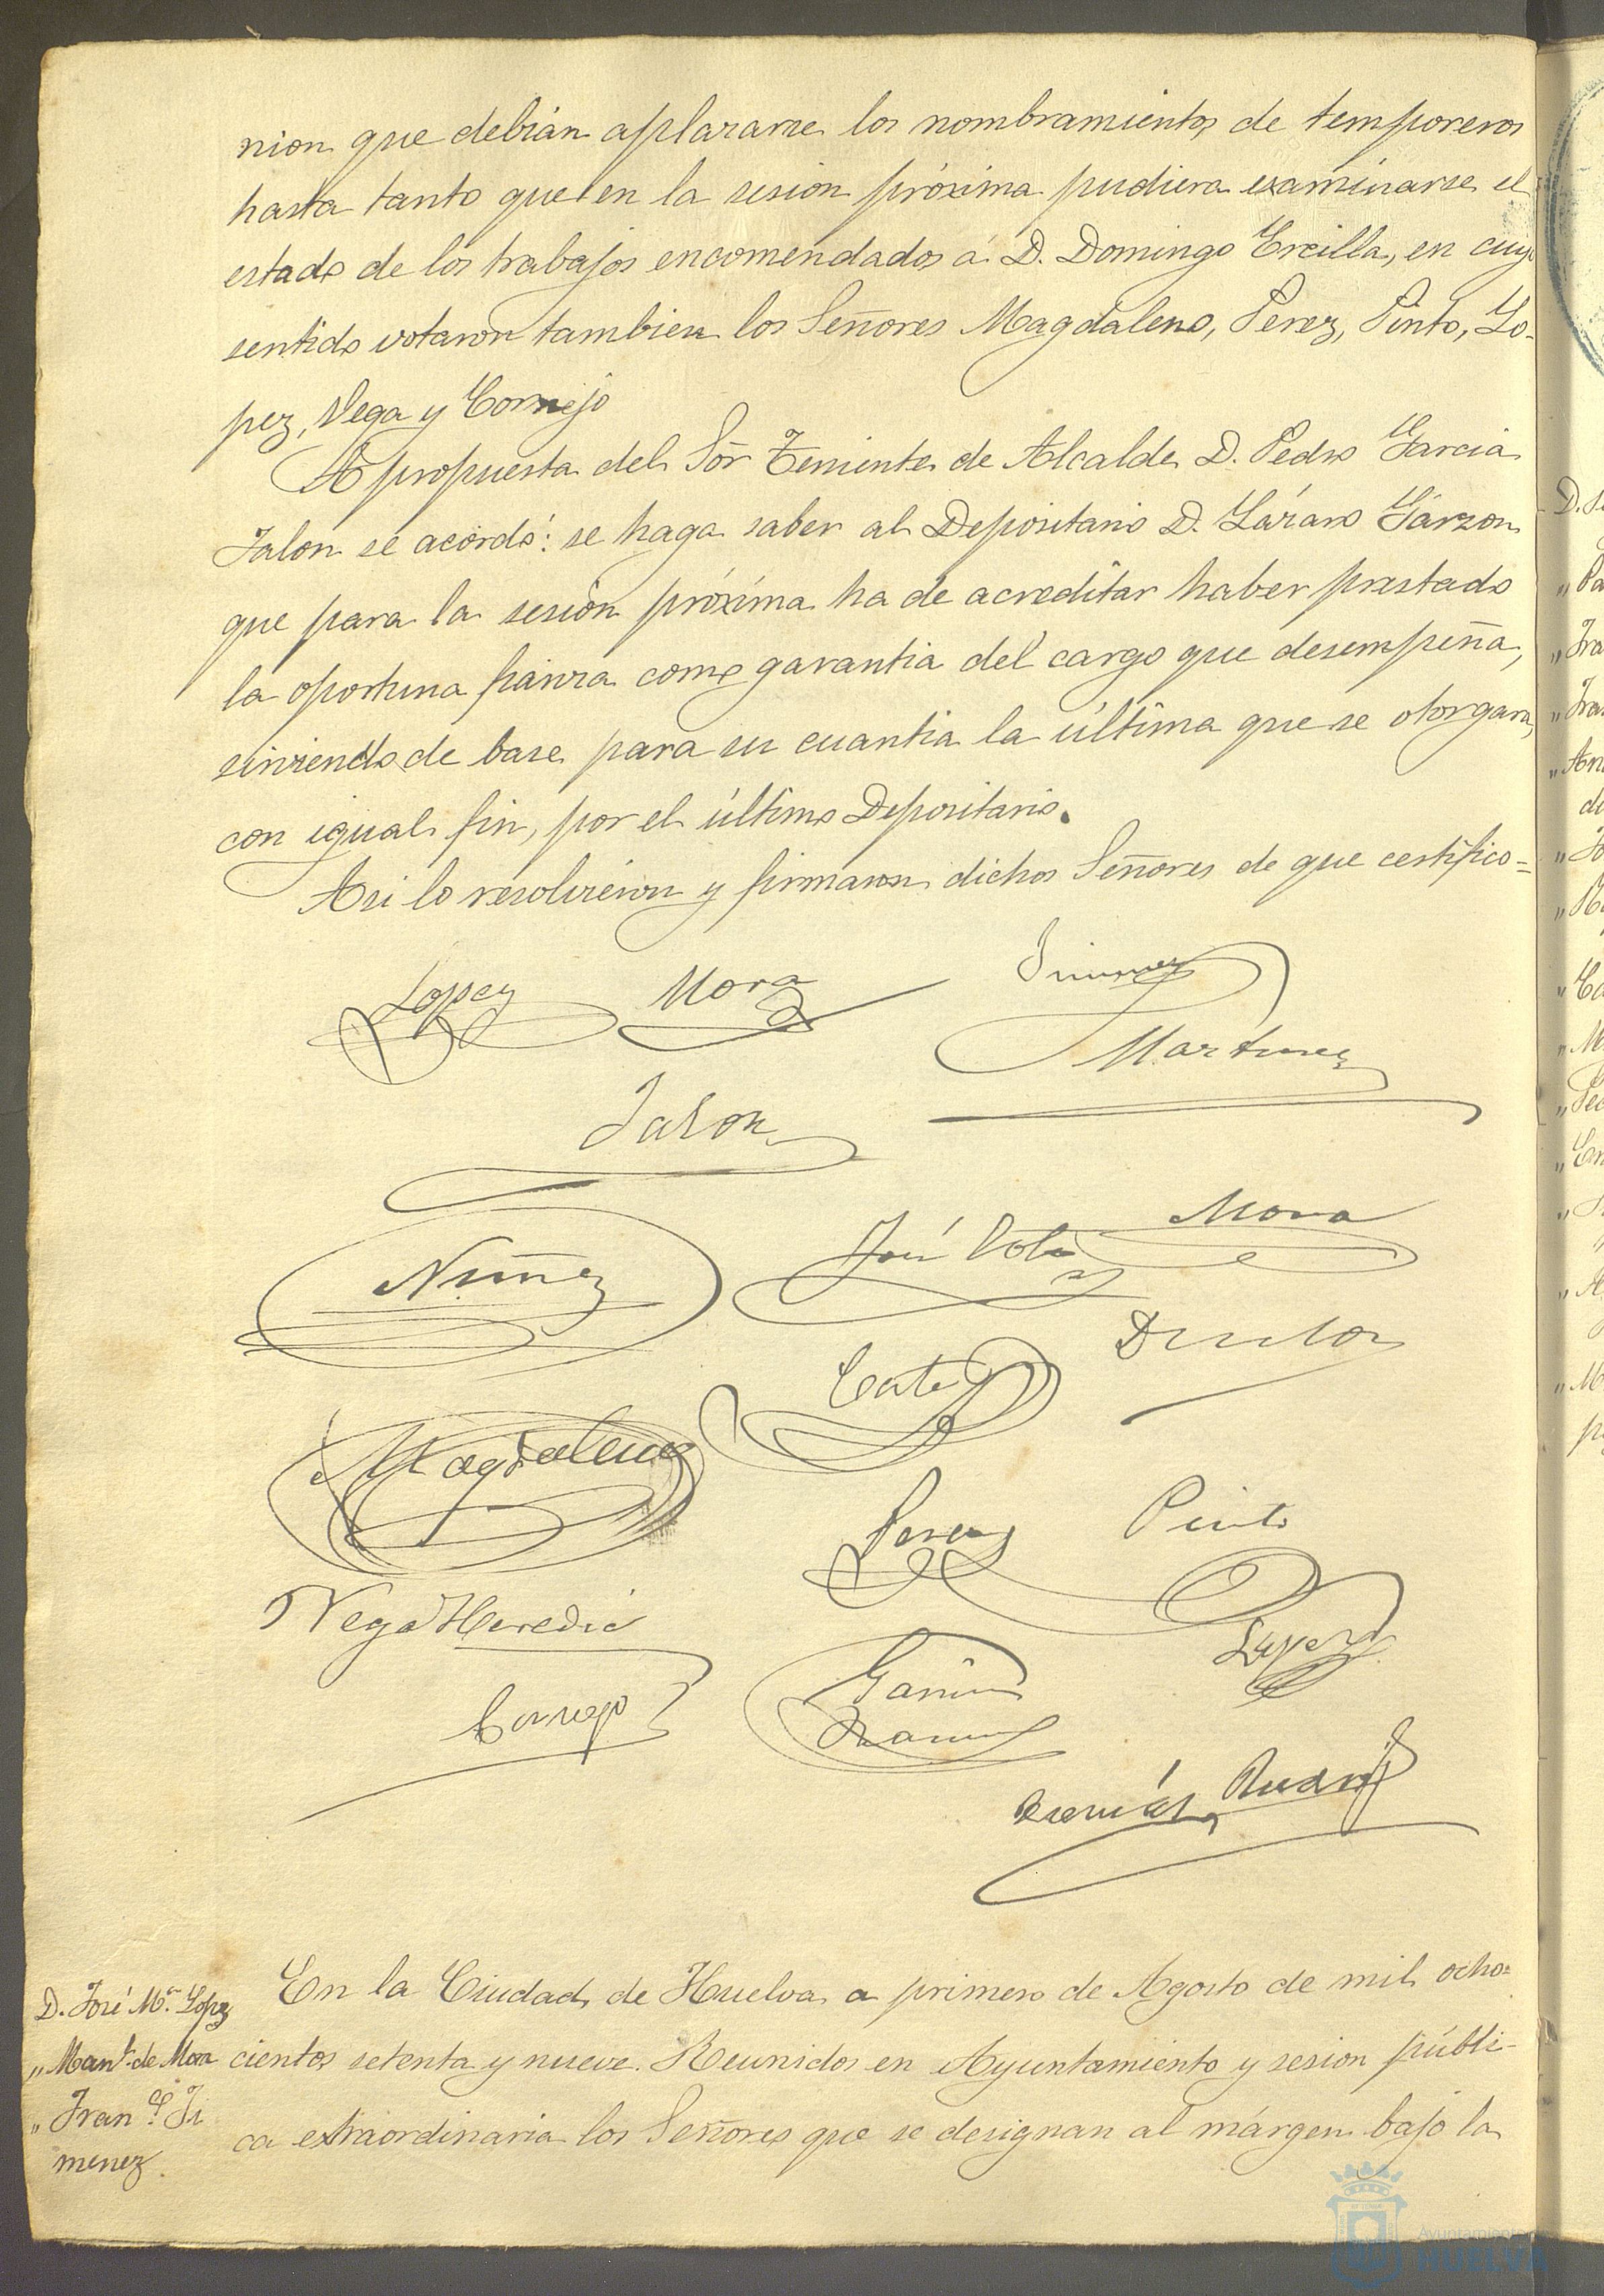 nion que debian aplazarse los nombramientos de temporeros
hasta tanto que en la sesion próxima pudiera examinarse el
estado de los trabajos encomendados á D. Domingo Ercilla, en cuyo
sentido votaron tambien los Señores Magdaleno, Perez, Pinto, Lo-
pez, Vega y Cornejo
A propuesta del Sõr Teniente de Alcalde D. Pedro Garcia
Jalon se acordó: se haga saber al Depositario D. Lázaro Garzon
que para la sesion próxima ha de acreditar haber prestado
la oportuna fianza como garantia del cargo que desempeña,
sirviendo de base para su cuantia la última que se otorgara,
con igual fin, por el último Depositario.
Asi lo resolvieron y firmaron dichos Señores de que certifico=
Lopez Mora Jimenez
Martinez
Jalon
Nuñez José Mora
Magdaleno
Perez Pinto
Vega Heredia
Lopez
Cornejo
Garcia
Ramos
D. José Mª Lopez
" Manl. de Mora
" Franco. Ji
menez
En la Ciudad de Huelva a primero de Agosto de mil ocho=
cientos setenta y nueve. Reunidos en Ayuntamiento y sesion públi-
ca extraordinaria los Señores que se designan al márgen bajo la
Ayuntamiento
HUELVA